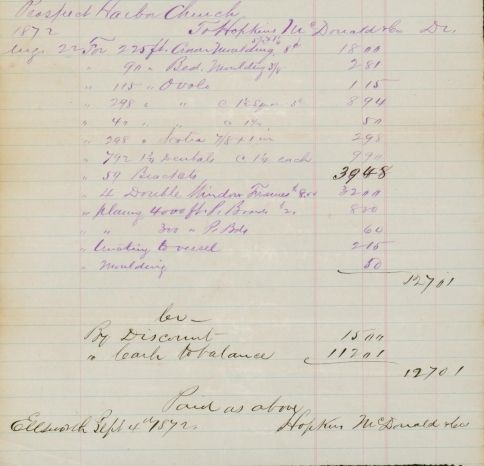 Prospect Harbor Church
1872 To Hopkins McDonald & Co Dr.
Aug 22 For 225 ft. Crown Moulding 8¢ 18 00
" 90 " Bed. Moulding 2 81
" 115 " Ovolo 1 15
" 298 " " 8 94
" 40 " " 50
" 298 " Scotia 7/8 x 1 in 2 98
" 792 1½ Dentals @ 1¼ each 9 90
" 59 Brackets 39 48
" 4 Double Window Frames $8.00 32 00
" planing 4000 ft. P. Boards $2. 8 00
" " 300 " P. Bds 60
" Carting to vessel 2 15
" Moulding 50
127 01
Cr —
By Discount 15 00
" Cash to balance 112 01
127 01
Paid as above
Ellsworth Sept 4th 1872. Hopkins McDonald & Co